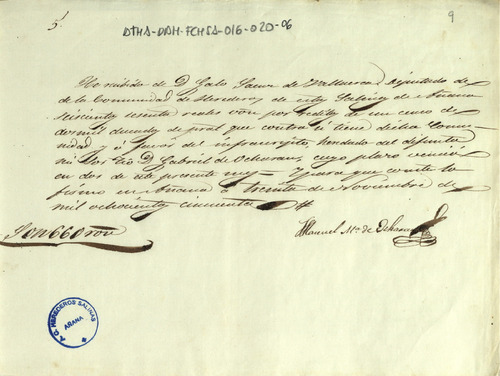 5
DTHA-DAH-FCHSA-016-020-06
9
He recibido de D. Galo Saenz de Valluerca, Diputado de
de la Comunidad de Herederos de estas Salinas de Añana
seiscientos sesenta reales von por redito de un censo de
dos mil ducados de pral que contra si tiene dicha Comu-
nidad y á favor del infraescrito, heredado del difunto
mi Sor Tio D. Gabriel de Ochoran, cuyo plazo venció
en dos de este presente mes = Y para que conste lo
firmo en Añana á treinta de Noviembre de
mil ochocientos cincuenta
Son 660 rs von
Manuel Ma. de Ochoran
A. C. HEREDEROS SALINAS
AÑANA